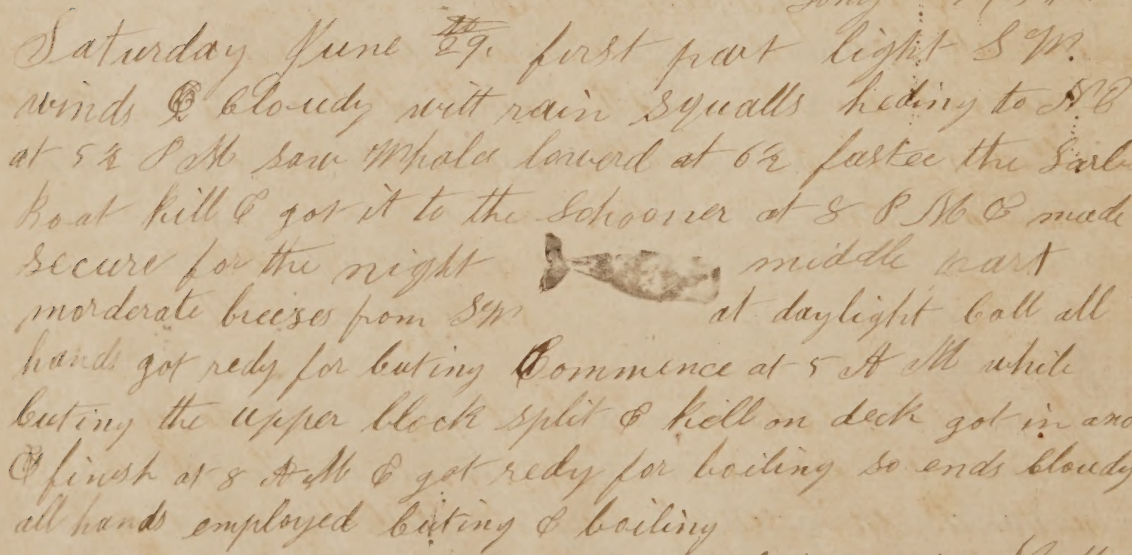 Saturday June 29th first part light S W.
winds & Cloudy witt rain squalls heding to N E
at 5½ P M saw Whales lowerd at 6½ fastee the Larb
boat kill & got it to the Schooner at 8 P M & made
secure for the night middle part
morderate breezes from S W at daylight Call all
hands got redy for Cuting Commence at 5 A M while
Cuting the upper block split & fell on deck got in and
& finish at 8 A M & got redy for boiling so ends Cloudy
all hands employed Cuting & boiling